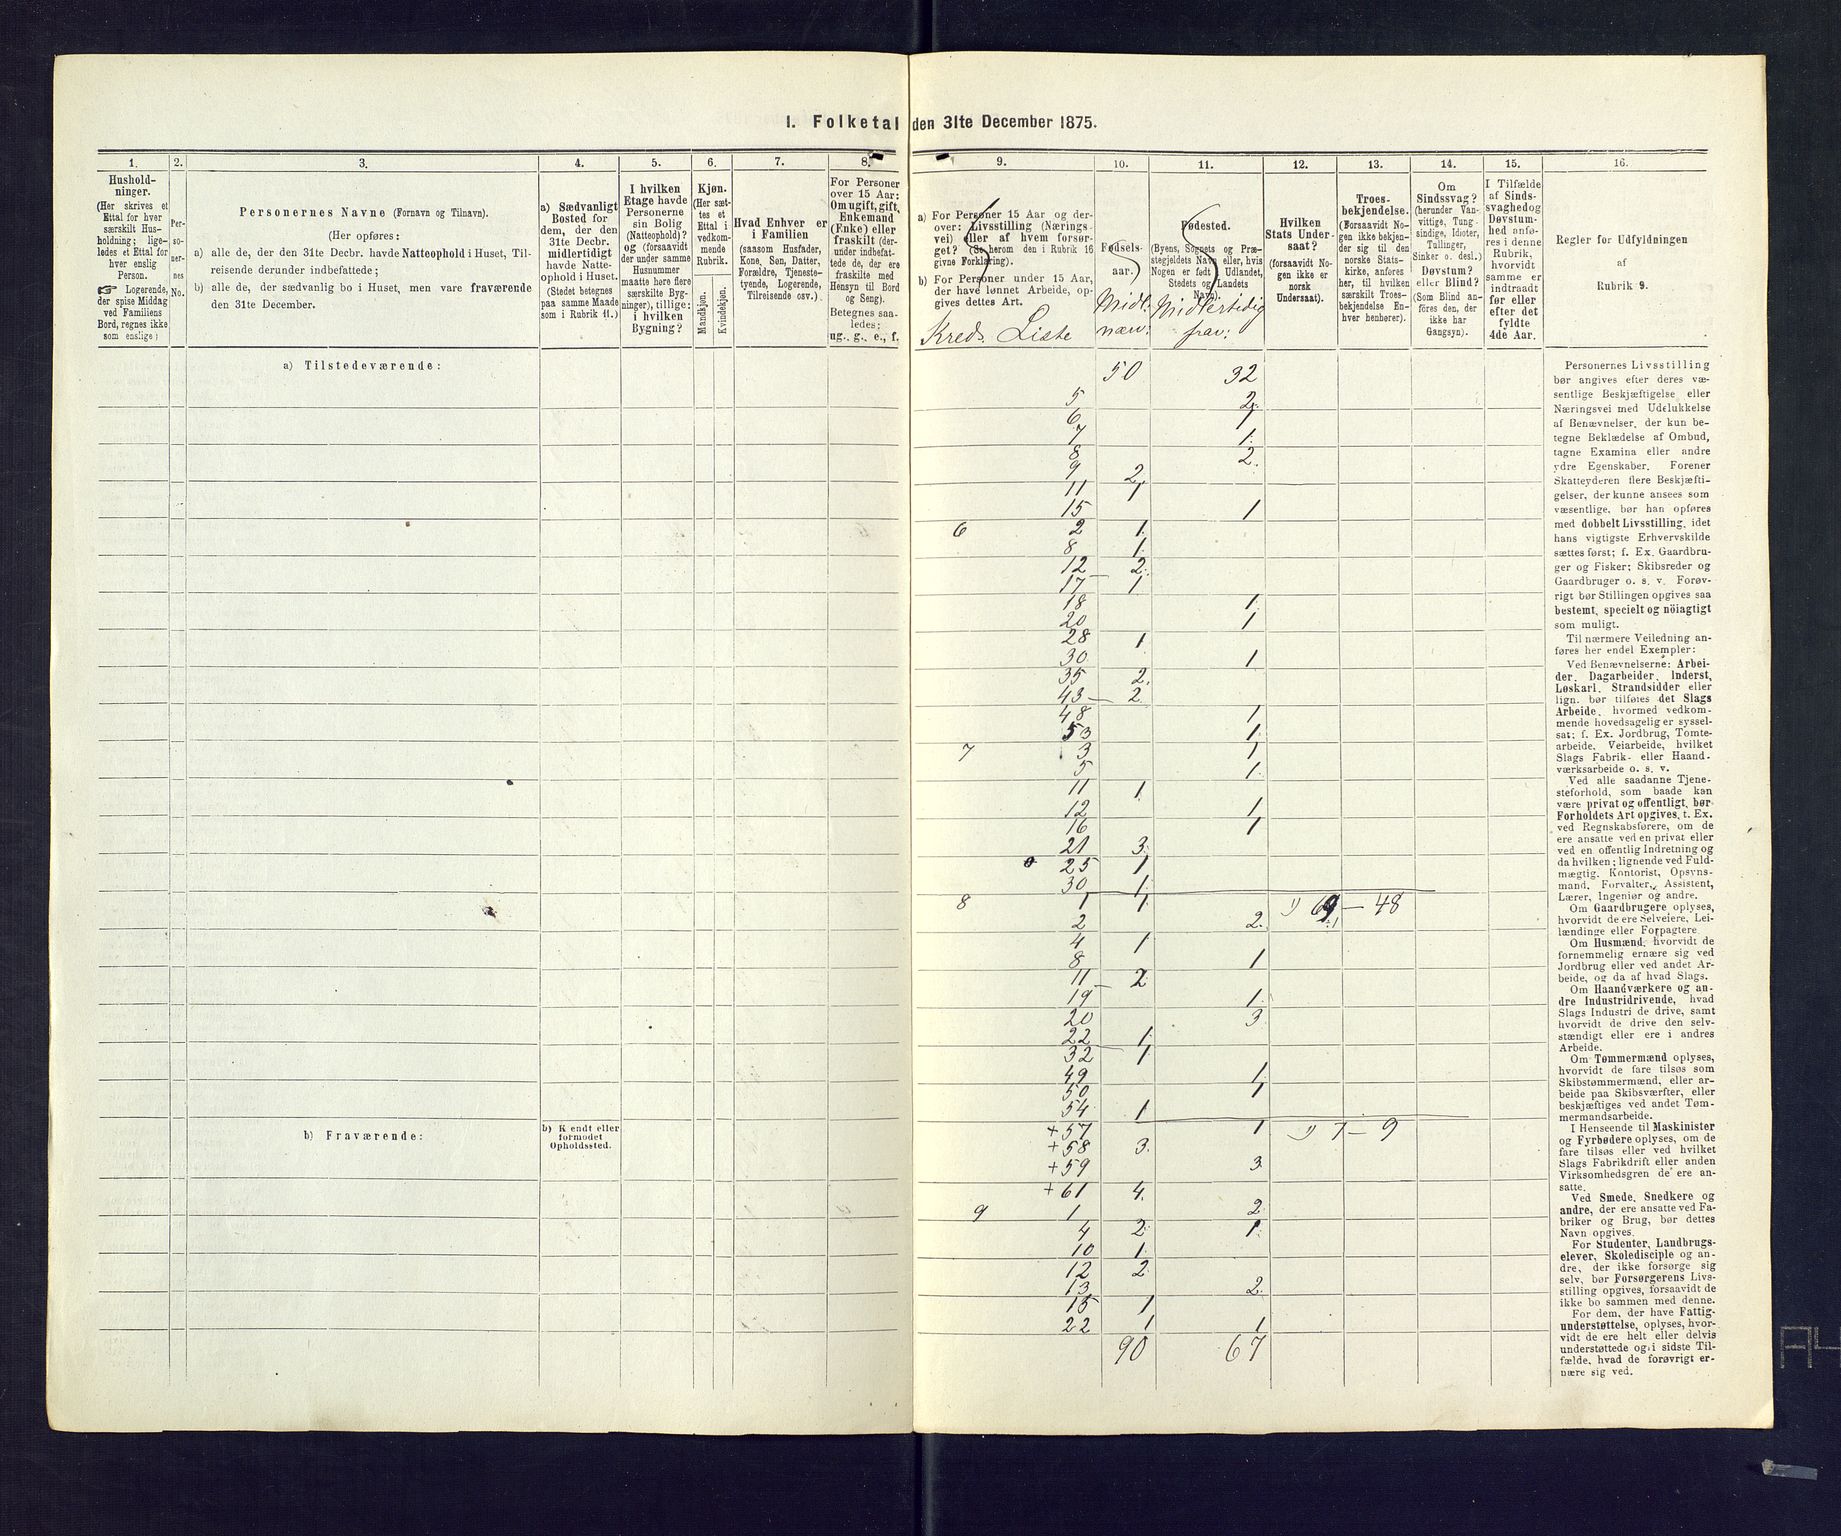 I. Folketal den 31te December 1875.
1.
Hushold-
ninger.
(Her skrives et
Ettal for hver
særskilt Hus-
holdning; lige-
ledes et Ettal for
hver enslig
Person.
☞ Logerende,
der spise Middag
ved Familiens
Bord, regnes ikke
som enslige)
2.
Per-
so-
ner-
nes
No.
3.
Personernes Navne (Fornavn og Tilnavn).
(Her opføres:
a) alle de, der den 31te Decbr. havde Natteophold i Huset, Til-
reisende derunder indbefattede;
b) alle de, der sædvanlig bo i Huset, men vare fraværende
den 31te December.
4.
a) Sædvanligt
Bosted for
dem, der den
31te Decbr.
midlertidigt
havde Natte-
ophold i Huset.
(Stedet betegnes
paa samme Maade
som i Rubrik 11.)
5.
I hvilken
Etage havde
Personerne
sin Bolig
(Natteophold)?
og (forsaavidt
der under samme
Husnummer
maatte høre flere
særskilte Byg-
ninger), tillige:
i hvilken
Bygning?
6.
Kjøn.
(Her sæt-
tes et
Ettal i
vedkom-
mende
Rubrik.
Mandkjøn.
Kvindekjøn.
7.
Hvad Enhver er
i Familien
(saasom Husfader,
Kone, Søn, Datter,
Forældre, Tjeneste-
tyende, Logerende,
Tilreisende osv.)
8.
For Personer
over 15 Aar:
Om ugift, gift,
Enkemand
(Enke) eller
fraskilt (der-
under indbefat-
tede de, der ere
fraskilte med
Hensyn til Bord
og Seng).
Betegnes saa-
ledes:
ug., g., e., f.
9.
a) For Personer 15 Aar og der-
over: Livsstilling (Nærings-
vei) eller af hvem forsør-
get? (Se herom den i Rubrik 16
givne Forklaring).
b) For Personer under 15 Aar,
der have lønnet Arbeide, op-
gives dettes Art.
Kreds. Liste
10.
Fødsels-
aar.
Midl.
nærv:
11.
Fødested.
(Byens, Sognets og Præ-
stegjeldets Navn eller, hvis
Nogen er født i Udlandet,
Stedets og Landets
Navn).
Midlertidig
frav:
12.
Hvilken
Stats Under-
saat?
(forsaavidt No-
gen ikke er
norsk
Undersaat).
13.
Troes-
bekjendelse.
(Forsaavidt No-
gen ikke bekjen-
der sig til den
norske Stats-
kirke, anføres
her, til hvilken
særskilt Troes-
bekjendelse En-
hver henhører).
14.
Om
Sindssvag?
(herunder Van-
vittige, Tung-
sindige, Idioter,
Tullinger,
Sinker o. desl.)
Døvstum?
eller Blind?
(Som Blind an-
føres den, der
ikke har
Gangsyn).
15.
I Tilfælde
af Sinds-
svaghed og
Døvstum-
hed anfø-
res i denne
Rubrik,
hvorvidt
samme er
indtraadt
før eller
efter det
fyldte
4de Aar.
16.
Regler for Udfyldningen
af
Rubrik 9.
a) Tilstedeværende:
50 32
5 2.
6 1
7 1.
8 2.
9 2.
11 1
15 1
6 2 1.
8 1.
12 2.
17 — 1
18 1.
20 1
28 1
30 1
35 2.
43 — 2
48 1
53 1.
7 3 1
5 1.
11 1.
12 1
16 1
21 3.
25 1
30 1.
8 1 1 69 — 48
2 2.
4 1
8 1
11 2
19 — 1.
20 3.
22 1.
32 — 1
49 1
50 1
54 1
+ 57 1 7 — 9
+ 58 3.
+ 59 3.
+ 61 4.
9 1 2.
4 2. 1.
10 1.
12 2
13 2.
15 1
22 1 1
90 67
b) Fraværende:
b) Kjendt eller
formodet
Opholdssted.
Personernes Livsstilling
bør angives efter deres væ-
sentlige Beskjæftigelse eller
Næringsvei med Udelukkelse
af Benævnelser, der kun be-
tegne Beklædelse af Ombud,
tagne Examina eller andre
ydre Egenskaber. Forener
Skatteyderen flere Beskjæfti-
gelser, der kunne ansees som
væsentlige, bør han opføres
med dobbelt Livsstilling, idet
hans vigtigste Erhvervskilde
sættes først; f. Ex. Gaardbru-
ger og Fisker; Skibsreder og
Gaardbruger o. s. v. Forøv-
rigt bør Stillingen opgives saa
bestemt, specielt og nöiagtigt
som muligt.
Til nærmere Veiledning an-
føres her endel Exempler:
Ved Benævnelserne: Arbei-
der, Dagarbeider, Inderst,
Løskarl, Strandsidder eller
lign. bør tilføies det Slags
Arbeide, hvormed vedkom-
mende hovedsagelig er syssel-
sat; f. Ex. Jordbrug, Tomte-
arbeide, Veiarbeide, hvilket
Slags Fabrik- eller Haand-
værksarbeide o. s. v.
Ved alle saadanne Tjene-
steforhold, som baade kan
være privat og offentligt, bør
Forholdets Art opgives, t. Ex.
ved Regnskabsførere, om de
ere ansatte ved en privat eller
ved en offentlig Indretning og
da hvilken; lignende ved Fuld-
mægtig, Kontorist, Opsyns-
mand, Forvalter, Assistent,
Lærer, Ingeniør og andre.
Om Gaardbrugere oplyses,
hvorvidt de ere Selveiere, Lei-
lændinge eller Forpagtere.
Om Husmænd, hvorvidt de
fornemmelig ernære sig ved
Jordbrug eller ved andet Ar-
beide, og da af hvad Slags.
Om Haandværkere og an-
dre Industridrivende, hvad
Slags Industri de drive, samt
hvorvidt de drive den selv-
stændigt eller ere i andres
Arbeide.
Om Tømmermænd oplyses,
hvorvidt de fare tilsøs som
Skibstømmermænd, eller ar-
beide paa Skibsværfter, eller
beskjæftiges ved andet Tøm-
mermandsarbeide.
I Henseende til Maskinister
og Fyrbødere oplyses, om de
fare tilsøs eller ved hvilket
Slags Fabrikdrift eller anden
Virksomhedsgren de ere an-
satte.
Ved Smede, Snedkere og
andre, der ere ansatte ved Fa-
briker og Brug, bør dettes
Navn opgives.
For Studenter, Landbrugs-
elever, Skoledisciple og an-
dre, der ikke forsørge sig
selv, bør Forsørgerens Livs-
stilling opgives, forsaavidt de
ikke bo sammen med denne.
For dem, der have Fattig-
understøttelse, oplyses, hvor-
vidt de ere helt eller delvis
understøttede og i sidste Til-
fælde, hvad de forøvrigt er-
nære sig ved.